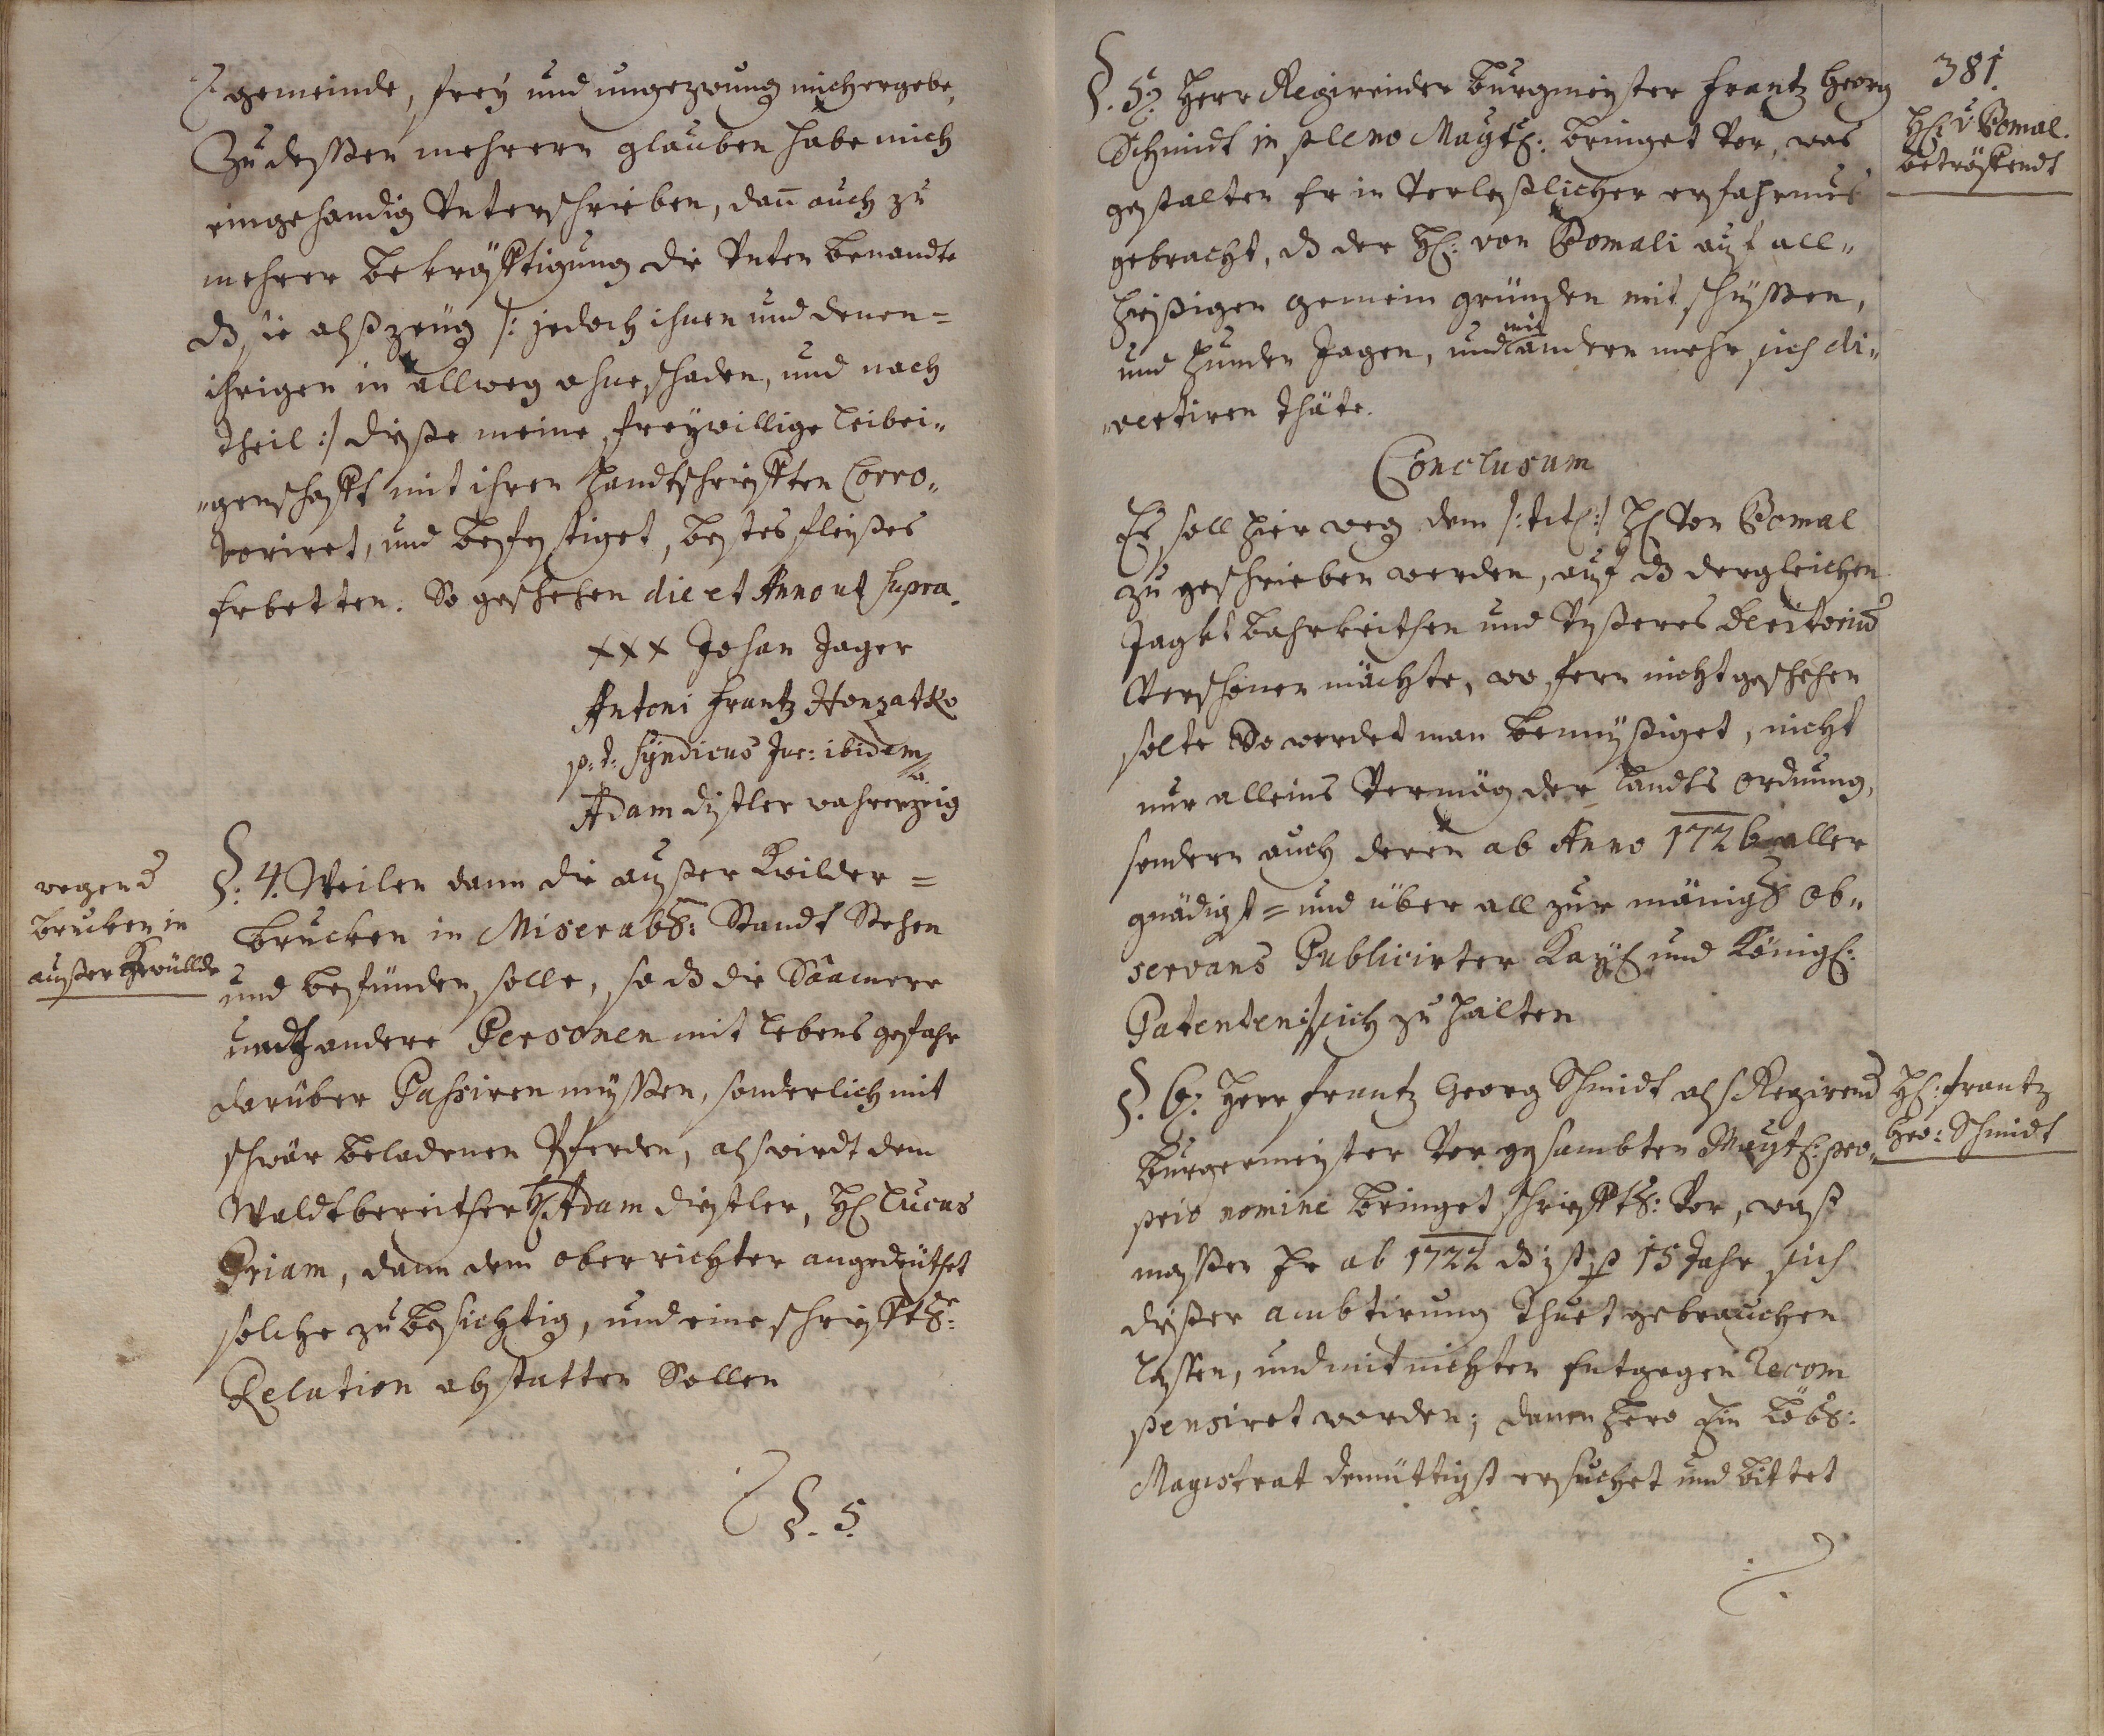 gemeinde, freÿ und ungezwung mich ergebe,
Zu deßen mehreren glauben habe mich
eingehandig Unterschrieben, dann auch zu
mehrer bekräfftigung die Unten benandte
dß sie alß zeüg /: jedoch ihnen und denen=
ihrigen in allweg ohne schaden, und nach
theil :/ dieße meine freÿwillige Leibei„
„genschafft mit ihren Handtschriefften Corro„
boriret, und befestiget, bestes fleißes
Erbetten. So geschehen die et Anno ut supra.
xxx Johan Jager
Antoni Frantz Honzatko
p: t: Syndicus Jur: ibidem
Adam distler wahrer zeig
wegen d
brucken in
außer Gewüllde
§. 4. Weilen dann die außer Kwilder=
brucken in Miserabl: Standt Stehen
und befünden solle, so dß die Säamere
undt andere Personen mit Lebens gefahr
darüber Passiren müssen, sonderlich mit
schwär beladenen Pferden, als wirdt dem
Waldtbereither H. Adam distler, H: Lucas
Priam, dann dem ober richter angedeüthet
solche zu besichtig, und eine schrifftl:
Relation abstatten Sollen
§. 5
381.
§. 5. Herr Regirender burgmeister Frantz Georg
Schmidt in pleno Magtl: bringet Vor, was
gestalten Er in Verleßlicher erfahrnus
gebracht, dß der H: von Pomali auf all„
hießigen gemein gründen mit schüssen,
und Hunden Jagen, und mit anderen mehr sich di„
„vertiren thäte.
H: v Pomal.
betröffendt
Conclusum
Es soll hier weg dem /: titl :/ H Von Pomal
zu geschrieben werden, auf dß dergleichen
Jagdtbahrkeithen und Unßeres Territorium
Verschonen möchte, wo fern nicht geschehen
solte So werdet man bemüßiget, nicht
nur alleins Vermög der Landts ordnung,
sondern auch deren ab Anno 1726 aller
gnädigst= und über all zur mänigl ob„
servans Publicirter Kaÿl und Königl:
Patenten :/ sich zu halten
§. 6. Herr Frantz Georg Schmidt als Regirend
Burgermeister Vor gesambten Magtl: pro„
prio nomine bringet schrifftl: Vor, waß
massen Er ab 1722 dß ist p 15 Jahr sich
dießer ambtirung thuet gebrauchen
lassen, und mit nichten Entgegen Recom
pensiret worden; dannenhero Ein Löbl:
Magistrat demüttigst ersuchet und bittet
H: Frantz
Geo: Schmidt